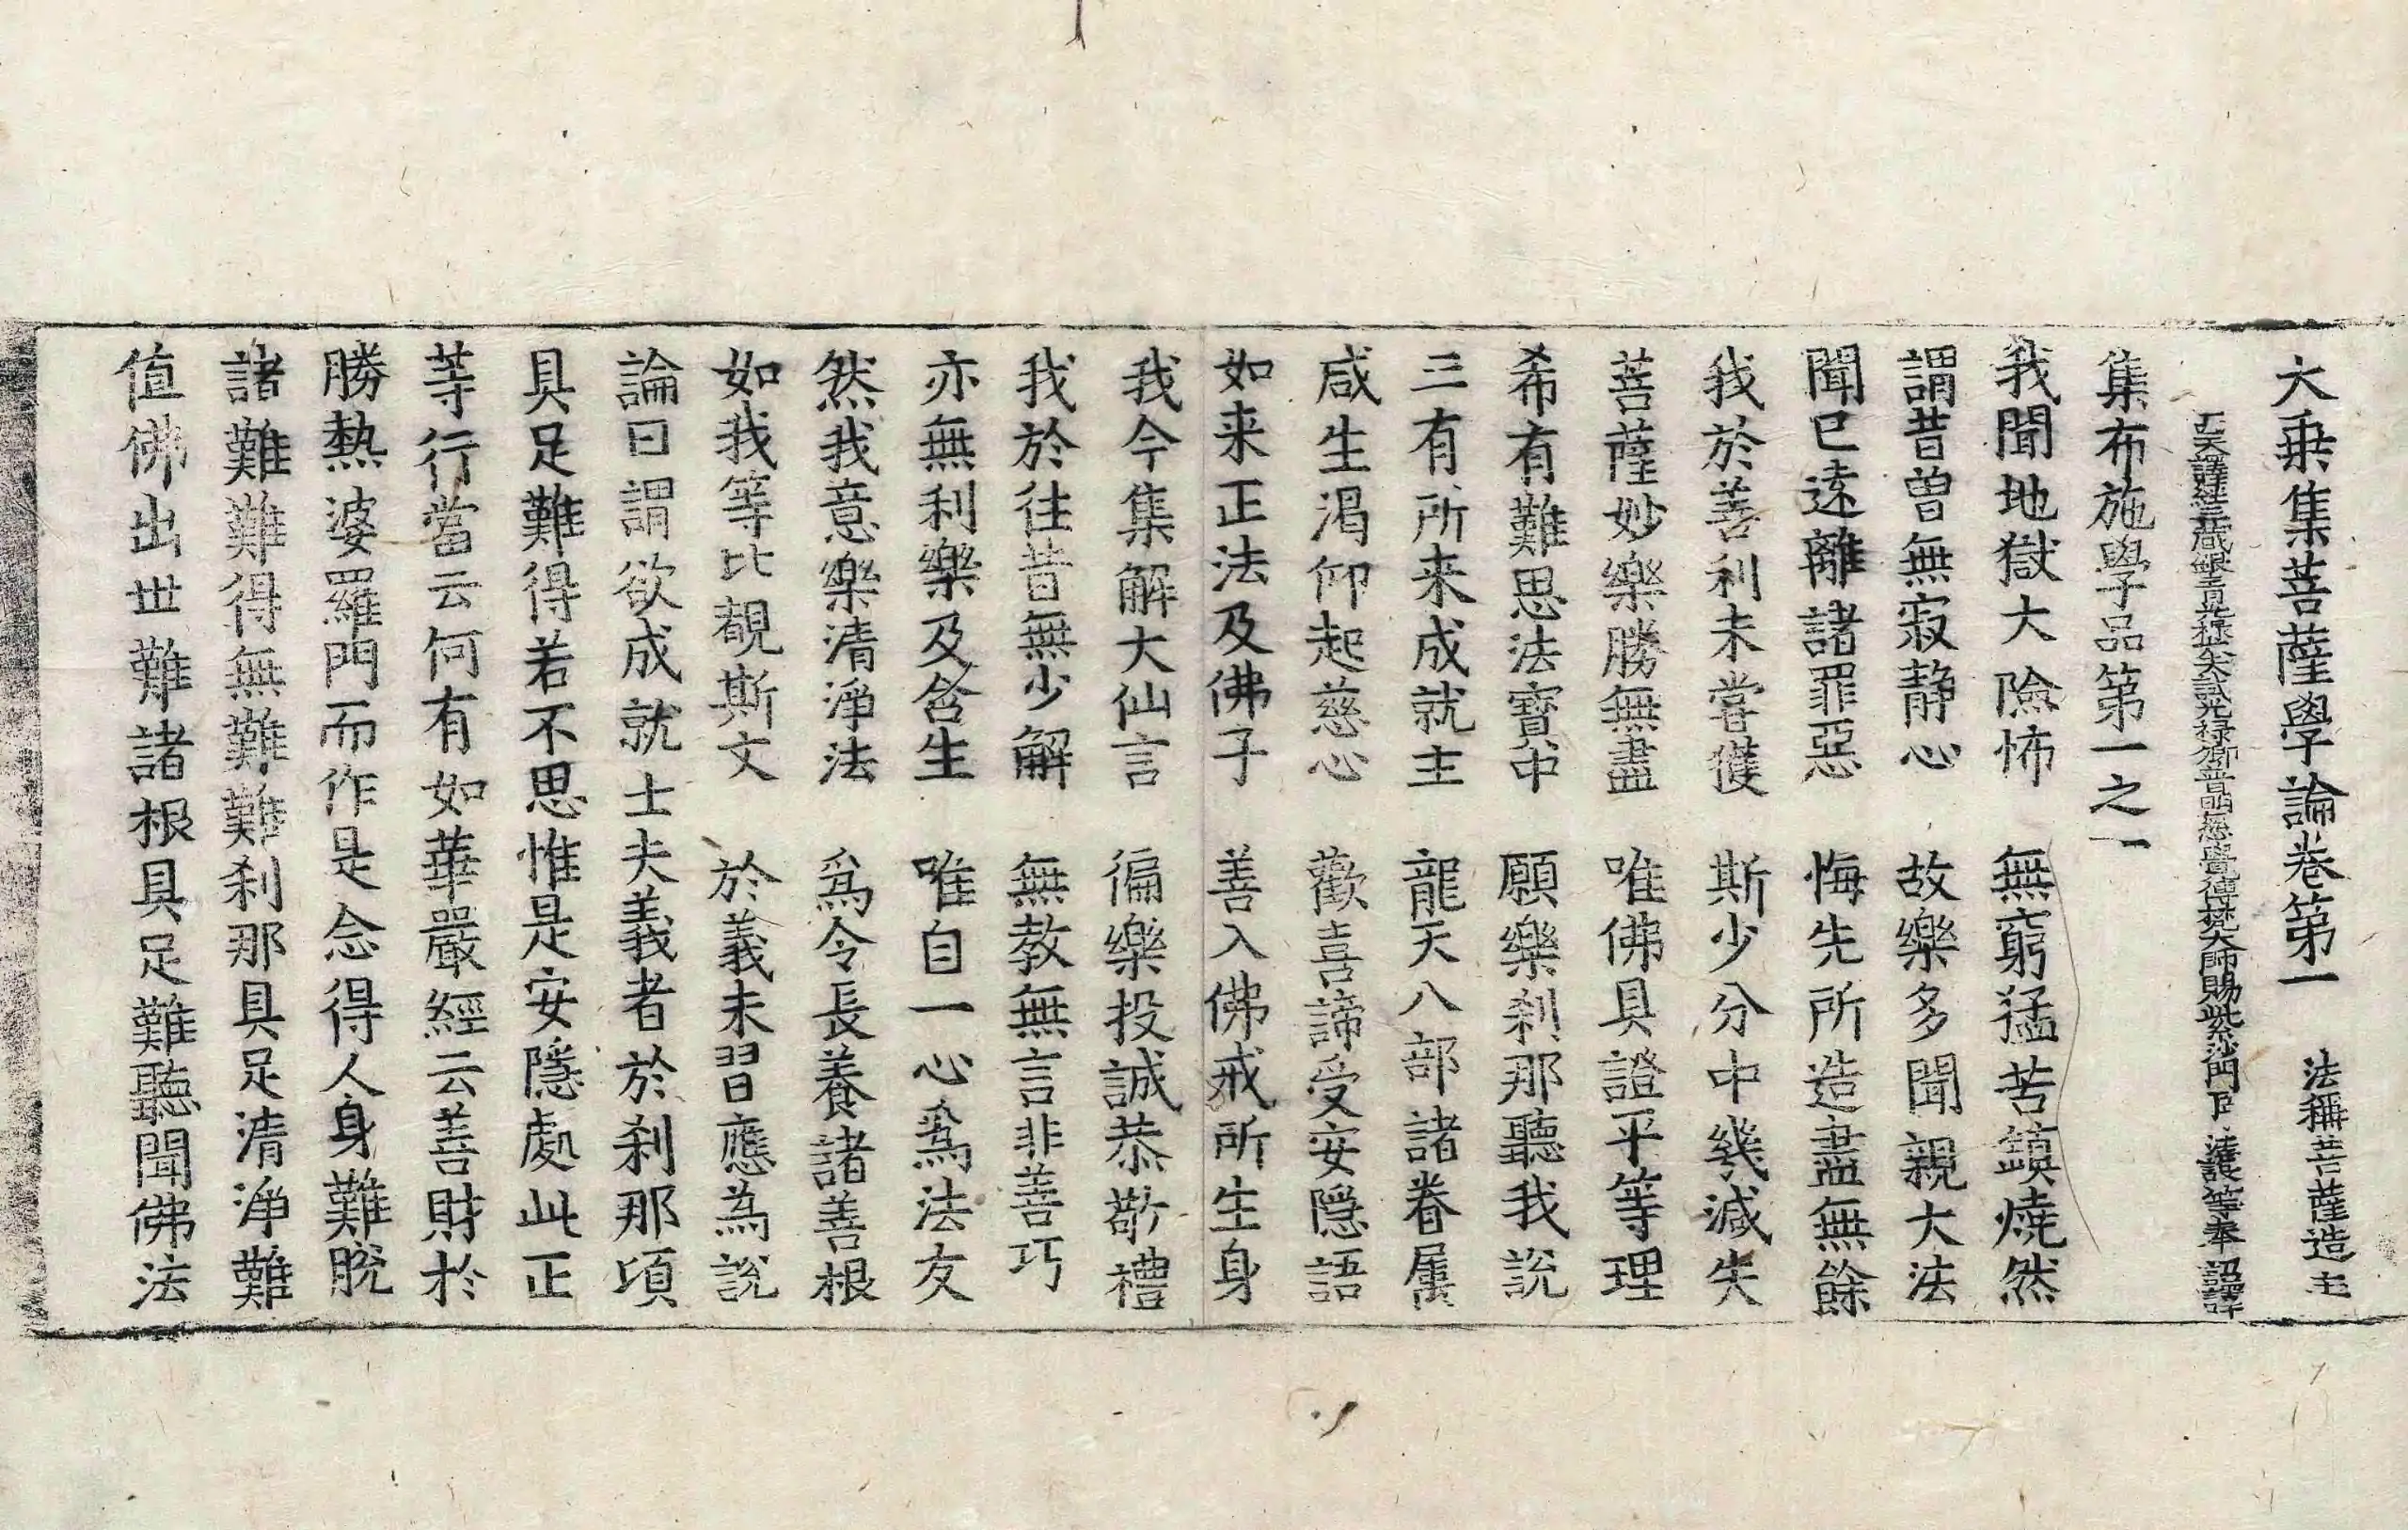 大乗集菩薩學論卷第一　法稱菩薩造 主
西天譯經三藏銀青光祿大夫試光禄卿普明慈覺傳梵大師賜紫沙門臣法護等奉 詔譯
集布施學品第一之一
我聞地獄大險怖　無窮猛苦鎮燒然
謂昔曽無寂静心　故樂多聞親大法
聞已逺離諸罪惡　悔先所造盡無餘
我於善利未嘗獲　斯少分中幾減失
菩薩妙樂勝無盡　唯佛具證平等理
希有難思法寶中　願樂刹那聽我説
三有所来成就主　龍天八部諸眷属
咸生渇仰起慈心　歡喜諦受安隱語
如来正法及佛子　善入佛戒所生身
我今集解大仙言　徧樂投誠恭敬禮
我於往昔無少解　無教無言非善巧
亦無利樂及含生　唯自一心爲法友
然我意樂清淨法　爲令長養諸善根
如我等比覩斯文　於義未習應為説
論曰謂欲成就士夫義者於刹那項
具足難得若不思惟是安隱處此正
等行當云何有如華嚴經云善財於
勝熱婆羅門而作是念得人身難脱
諸難難得無難難刹那具足清淨難
值佛出世難諸根具足難聽聞佛法